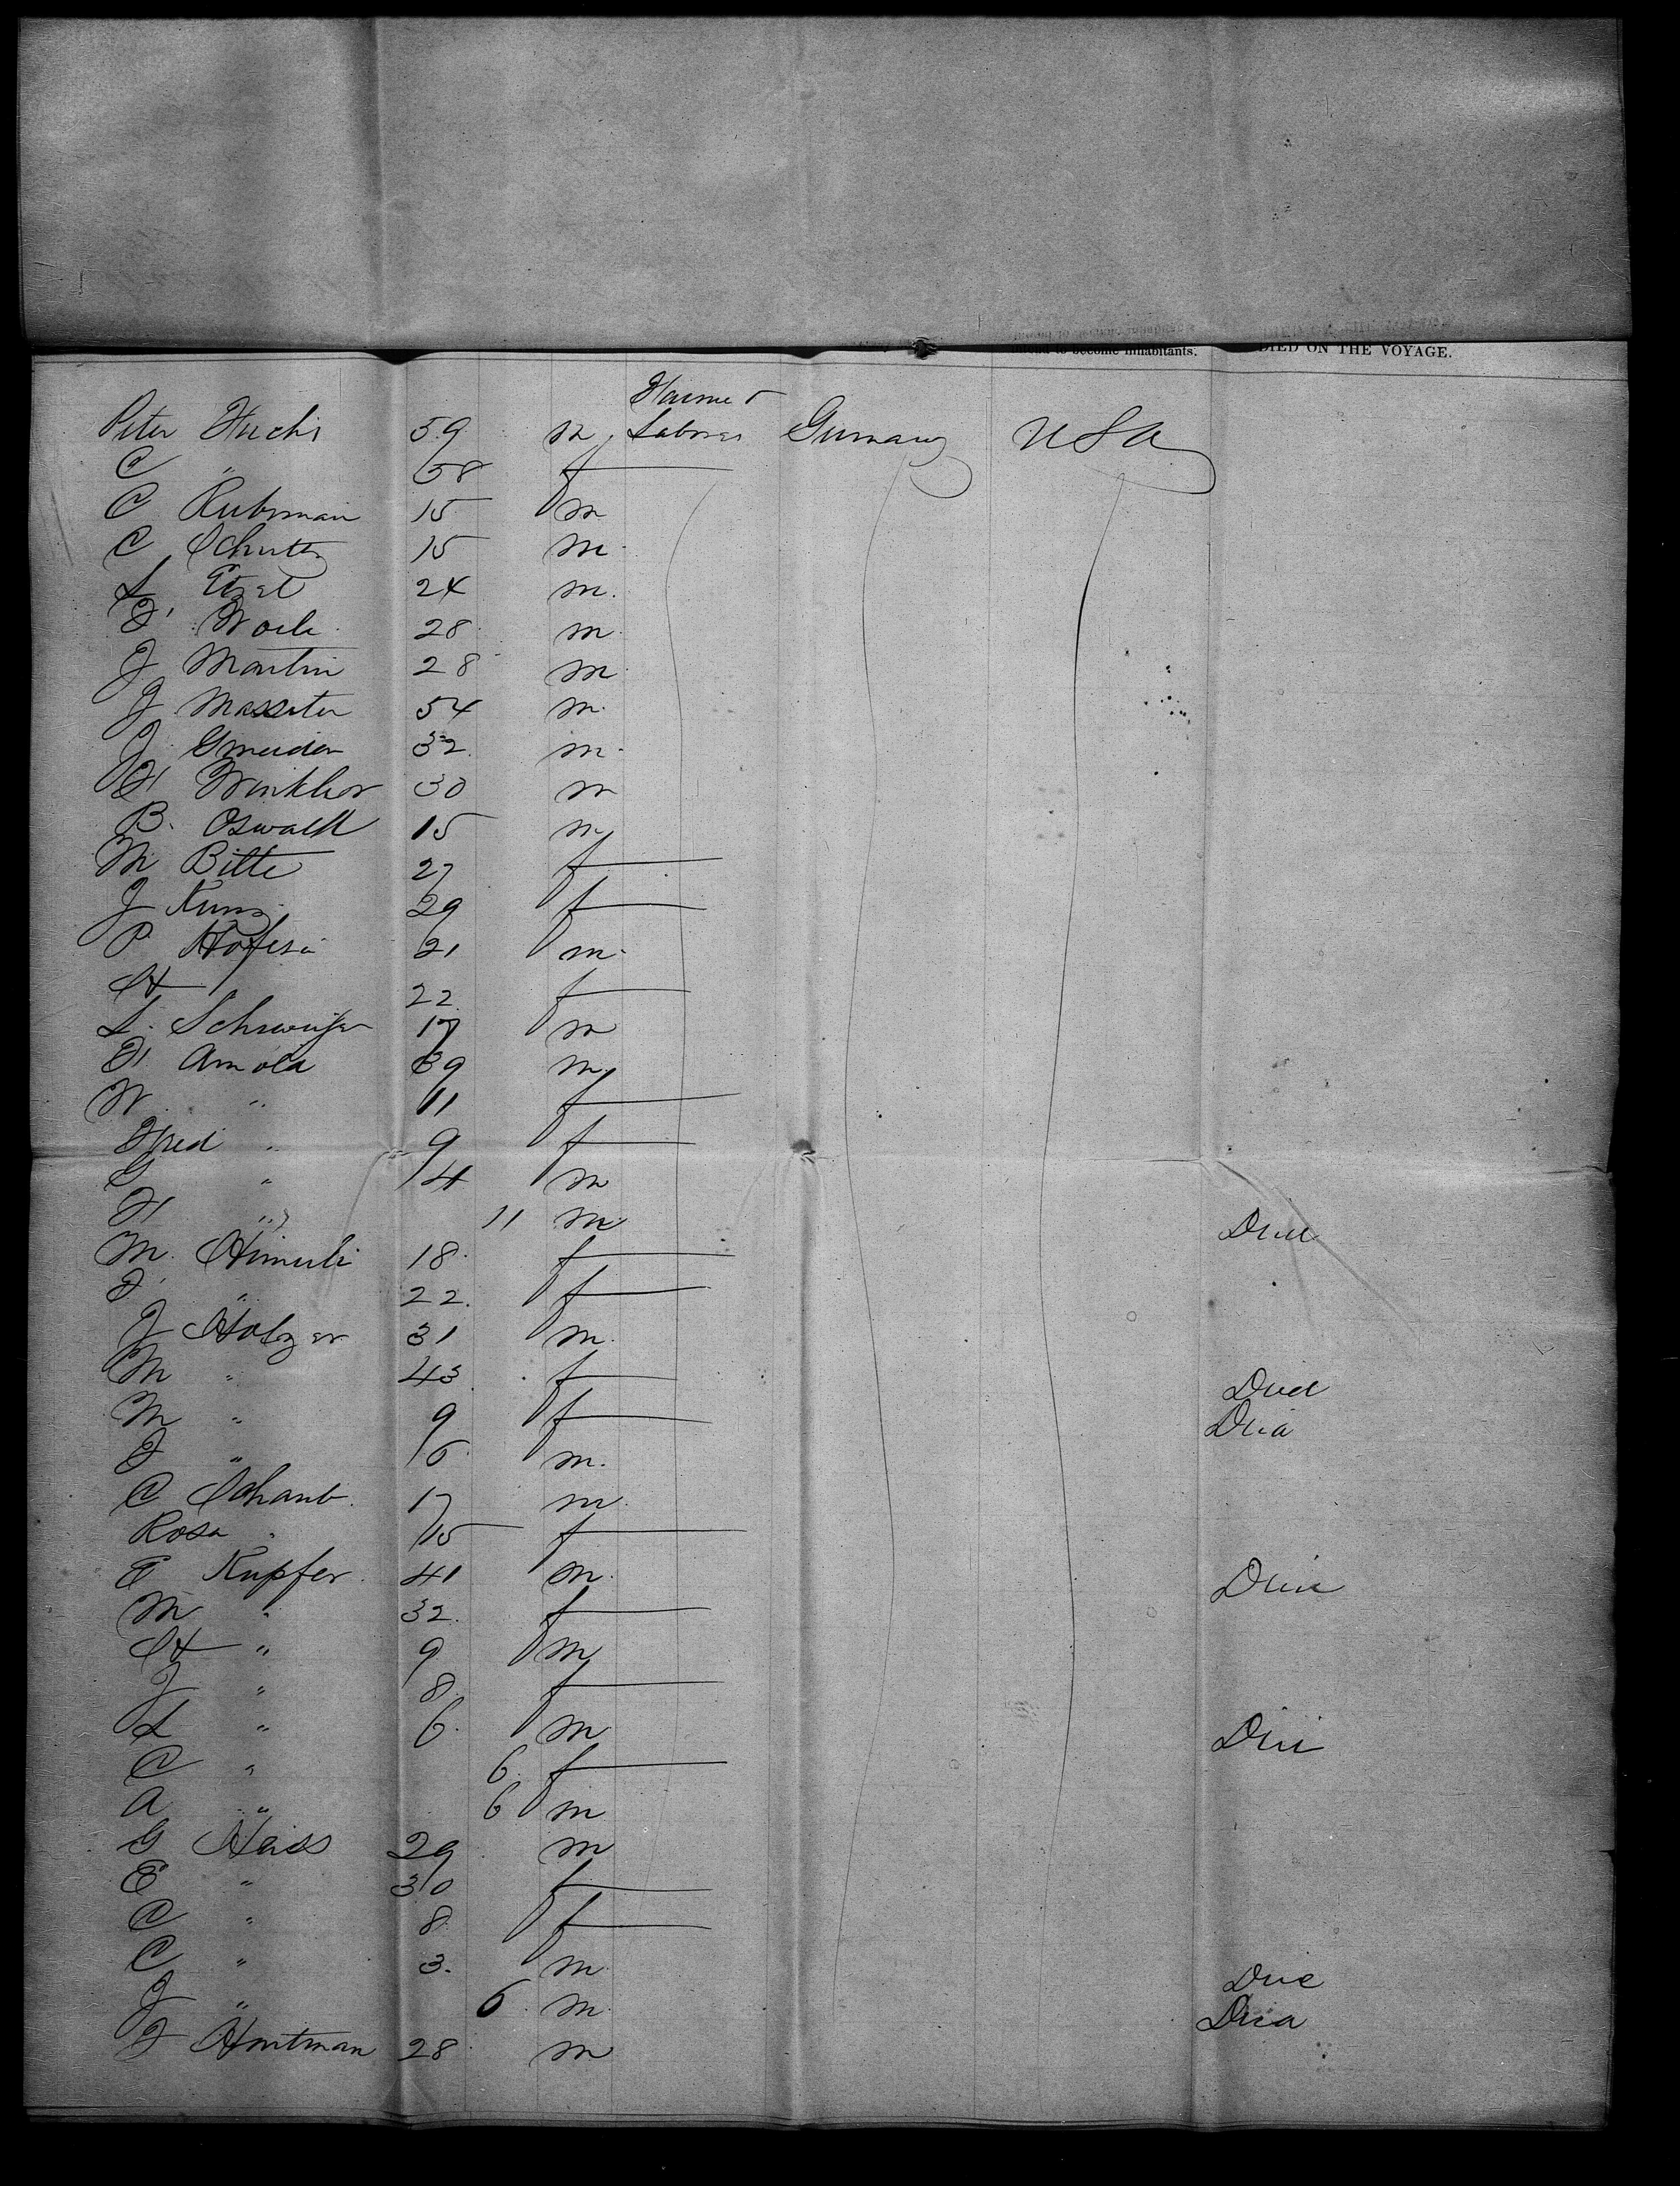 intend to become inhabitants. DIED ON THE VOYAGE.
Farmer
Peter Fuchs 59 m Laborer Germany USA
C " 58 f
C Rubsman 15 m
C Schultz 15 m
L Etzel 24 m
F 28 m
J Martin 28 m
J Massater 54 m
J Gmeider 32 m
F Winkler 30 m
B. Oswald 15 m
M Bitte 27 f
J Kunz 29 f
P 21 m
22 f
L. Schweizer 17 m
F Arnold 39 m
W " 11 f
Fred " 9 f
G " 4 m
F " 11 m Died
M. 18 f
F " 22 f
J Holzer 31 m
M " 43 f Died
M " 9 f Died
F " 6 m
C Schaub 17 m
Rosa " 15 f
E Kupfer 41 m Died
M " 32 f
H " 9 m
J " 8 f
L " 6 m Died
C " 6 f
A " 6 m
G Heiss 29 m
E " 30 f
C " 8 f
C " 3 m Died
J " 6 m Died
F Hartman 28 m